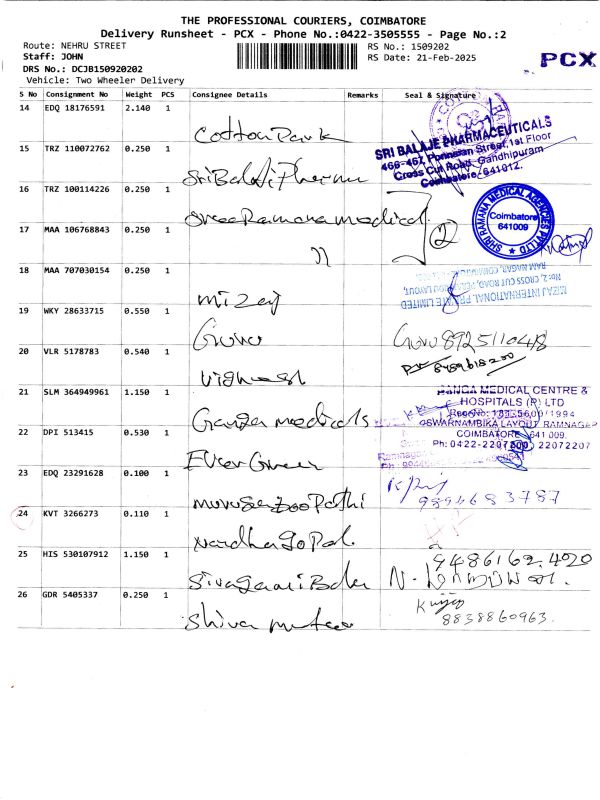 THE PROFESSIONAL COURIERS, COIMBATORE
Delivery Runsheet - PCX - Phone No.:0422-3505555 - Page No.:2
Route: NEHRU STREET
Staff: JOHN
DRS No.: DCJB150920202
Vehicle: Two Wheeler Delivery
RS No.: 1509202
RS Date: 21-Feb-2025
PCX
S No Consignment No Weight PCS Consignee Details Remarks Seal & Signature
14 EDQ 18176591 2.140 1 Cotton Park
15 TRZ 110072762 0.250 1 Sri Balaji Pharma
SRI BALAJE PHARMACEUTICALS
466-467, Ponnaian Street, 1st Floor
Cross Cut Road, Gandhipuram
Coimbatore - 641012.
16 TRZ 100114226 0.250 1 Sree Ramana medical
SHRI RAMANA MEDICAL AGENCIES PVT LTD
Coimbatore
641009
17 MAA 106768843 0.250 1 ⑵
18 MAA 707030154 0.250 1 mizaj
MIZAJ INTERNATIONAL PRIVATE LIMITED
No: 2, CROSS CUT ROAD,
RAM NAGAR, COIMBATORE
19 WKY 28633715 0.550 1 Guru
Guru 8925110418
20 VLR 5178783 0.540 1 Vighnesh
21 SLM 364949961 1.150 1 Ganga medicals
GANGA MEDICAL CENTRE &
HOSPITALS (P) LTD
SWARNAMBIKA LAYOUT, RAMNAGAR
COIMBATORE - 641 009.
Ph: 0422-2207200 22072207
22 DPI 513415 0.530 1 Ever Green
23 EDQ 23291628 0.100 1
9894683787
24 KVT 3266273 0.110 1
25 HIS 530107912 1.150 1
9486162420
26 GDR 5405337 0.250 1
8838860963